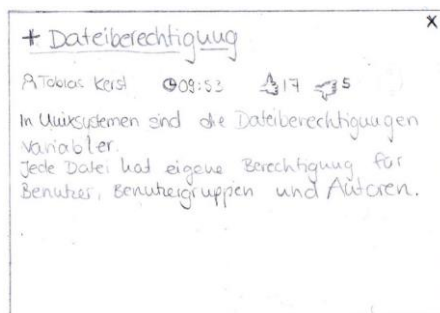 x
+ Dateiberechtigung
Tobias Kerst 09:53 17 5
In Unixsystemen sind die Dateiberechtigungen
variabler.
Jede Datei hat eigene Berechtigung für
Benutzer, Benutzergruppen und Autoren.